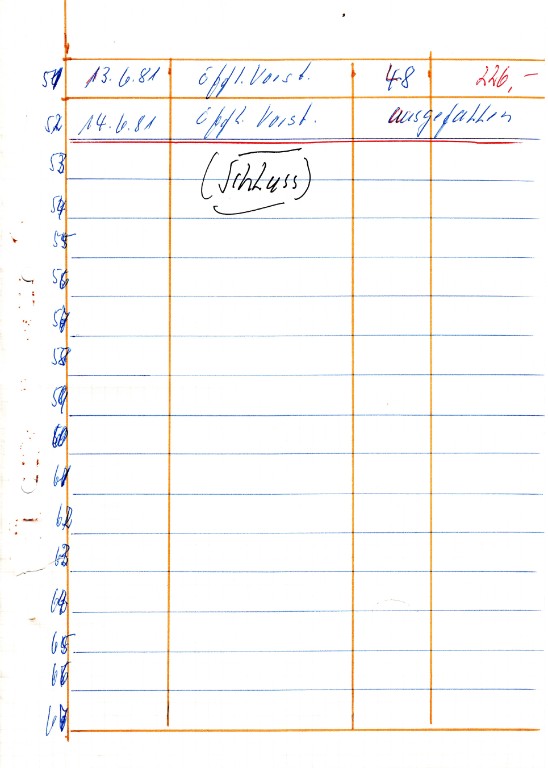 51 13.6.81 öffl. Vorst. 48 226,-
52 14.6.81 öffl. Vorst. ausgefallen
53 (Schluss)
54
55
56
57
58
59
60
61
62
63
64
65
66
67